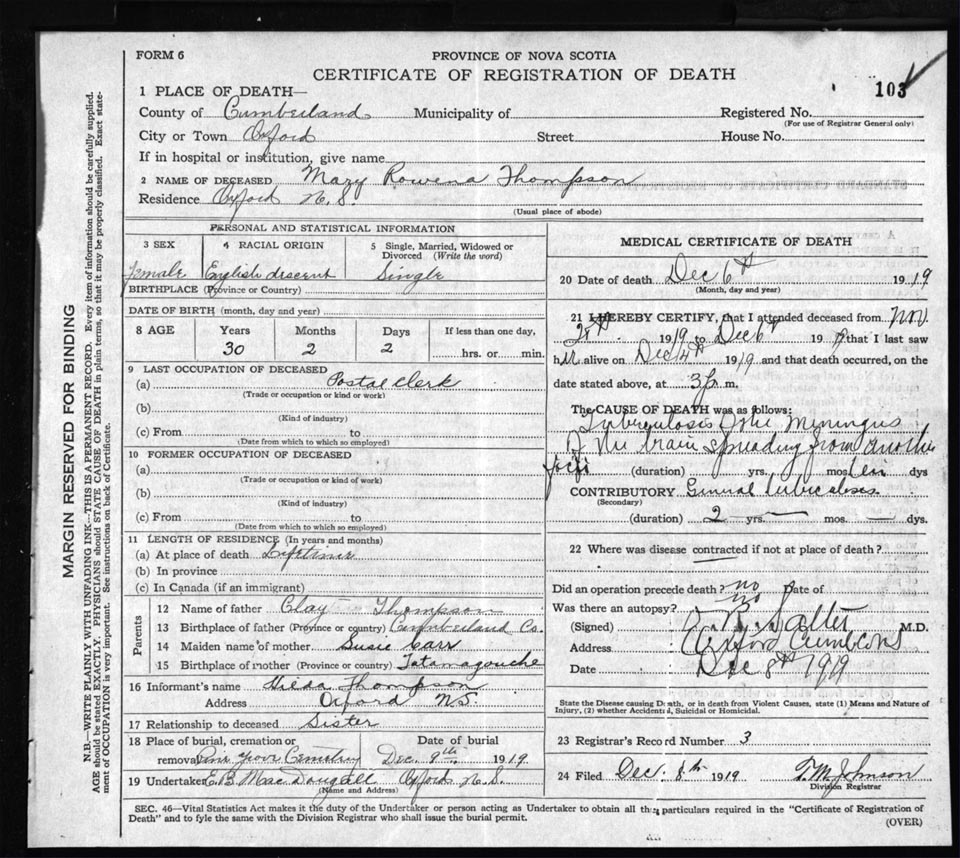 FORM 6
PROVINCE OF NOVA SCOTIA
CERTIFICATE OF REGISTRATION OF DEATH
103
1 PLACE OF DEATH—
County of Cumberland Municipality of Registered No.
(For use of Registrar General only)
City or Town Oxford Street House No.
If in hospital or institution, give name
2 NAME OF DECEASED Mary Rowena Thompson
Residence Oxford N.S.
(Usual place of abode)
PERSONAL AND STATISTICAL INFORMATION
3 SEX 4 RACIAL ORIGIN 5 Single, Married, Widowed or Divorced (Write the word)
Female English descent Single
BIRTHPLACE (Province or Country)
DATE OF BIRTH (month, day and year)
8 AGE Years Months Days If less than one day,
30 2 2 hrs. or min.
9 LAST OCCUPATION OF DECEASED
(a) Postal Clerk
(Trade or occupation or kind or work)
(b)
(Kind of industry)
(c) From to
(Date from which to which so employed)
10 FORMER OCCUPATION OF DECEASED
(a)
(Trade or occupation or kind of work)
(b)
(Kind of industry)
(c) From to
(Date from which to which so employed)
11 LENGTH OF RESIDENCE (In years and months)
(a) At place of death Lifetime
(b) In province
(c) In Canada (if an immigrant)
Parents
12 Name of father Clay Thompson
13 Birthplace of father (Province or country) Cumberland Co.
14 Maiden name of mother Susie Carr
15 Birthplace of mother (Province or country) Tatamagouche
16 Informant's name Hilda Thompson
Address Oxford N.S.
17 Relationship to deceased Sister
18 Place of burial, cremation or Date of burial
removal Pine Grove Cemetery Dec. 9th 1919.
19 Undertaker C.B. MacDougall Oxford N.S.
(Name and Address)
MEDICAL CERTIFICATE OF DEATH
20 Date of death Dec 6th 1919
(Month, day and year)
21 I HEREBY CERTIFY, that I attended deceased from Nov.
1919 to Dec 6th 19 that I last saw
h alive on Dec 4th 1919 and that death occurred, on the
date stated above, at 3 p. m.
The CAUSE OF DEATH was as follows:
Tuberculosis of the Meninges
of the brain spreading from another
foci (duration) yrs. mos. ten dys
CONTRIBUTORY General tuberculosis
(Secondary)
(duration) 2 yrs. — mos. — dys.
22 Where was disease contracted if not at place of death?
Did an operation precede death? no Date of
Was there an autopsy? no
(Signed) M.D.
Address Oxford Cumb Co NS
Date Dec 8th 1919
State the Disease causing Death, or in death from Violent Causes, state (1) Means and Nature of
Injury, (2) whether Accidental, Suicidal or Homicidal.
23 Registrar's Record Number 3
24 Filed Dec. 8th 1919 T.M. Johnson
Division Registrar
SEC. 46—Vital Statistics Act makes it the duty of the Undertaker or person acting as Undertaker to obtain all the particulars required in the "Certificate of Registration of
Death" and to fyle the same with the Division Registrar who shall issue the burial permit.
(OVER)
MARGIN RESERVED FOR BINDING
N.B.—WRITE PLAINLY WITH UNFADING INK—THIS IS A PERMANENT RECORD. Every item of information should be carefully supplied.
AGE should be stated EXACTLY. PHYSICIANS should STATE CAUSE OF DEATH in plain terms, so that it may be properly classified. Exact statement of OCCUPATION is very important. See instructions on back of Certificate.